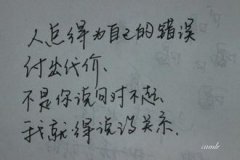 人总得为自己的错误
付出代价.
不是你说句对不起
我就得说没关系.